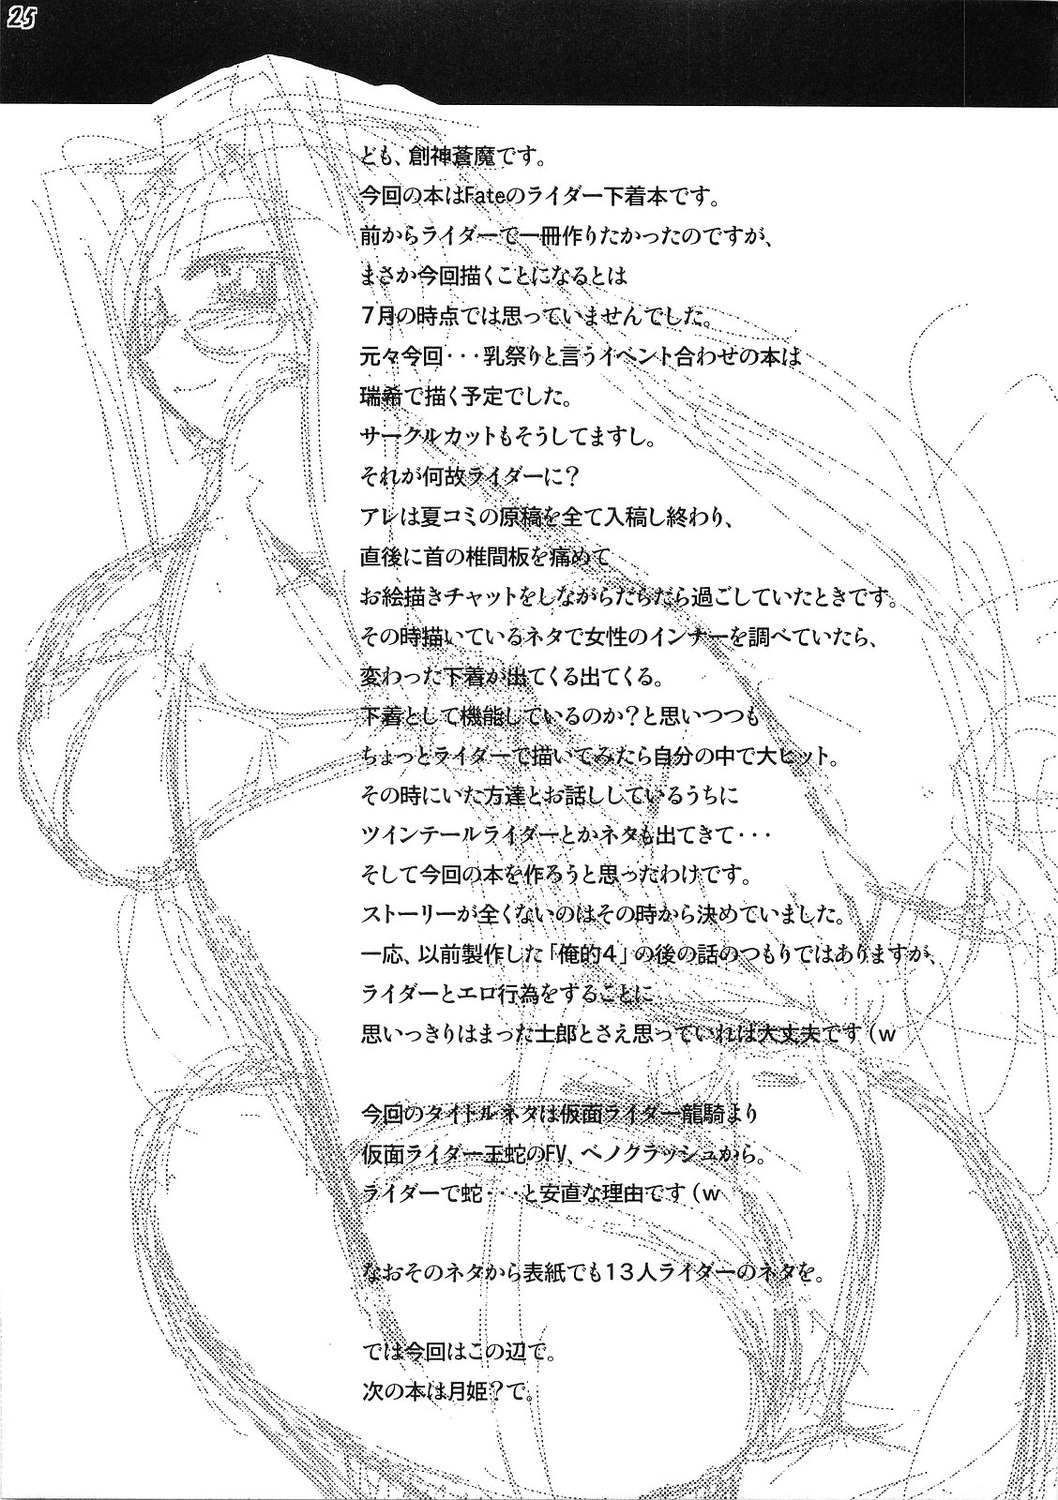 25
ども、創神蒼魔です。
今回の本はFateのライダー下着本です。
前からライダーで一冊作りたかったのですが、
まさか今回描くことになるとは
7月の時点では思っていませんでした。
元々今回･･･乳祭りと言うイベント合わせの本は
瑞希で描く予定でした。
サークルカットもそうしてますし。
それが何故ライダーに？
アレは夏コミの原稿を全て入稿し終わり、
直後に首の椎間板を痛めて
お絵描きチャットをしながらだらだら過ごしていたときです。
その時描いているネタで女性のインナーを調べていたら、
変わった下着が出てくる出てくる。
下着として機能しているのか？と思いつつも
ちょっとライダーで描いてみたら自分の中で大ヒット。
その時にいた方達とお話ししているうちに
ツインテールライダーとかネタも出てきて･･･
そして今回の本を作ろうと思ったわけです。
ストーリーが全くないのはその時から決めていました。
一応、以前製作した「俺的4」の後の話のつもりではありますが、
ライダーとエロ行為をすることに
思いっきりはまった士郎とさえ思っていれば大丈夫です（w
今回のタイトルネタは仮面ライダー龍騎より
仮面ライダー王蛇のFV、ベノクラッシュから。
ライダーで蛇･･･と安直な理由です（w
なおそのネタから表紙でも13人ライダーのネタを。
では今回はこの辺で。
次の本は月姫？で。